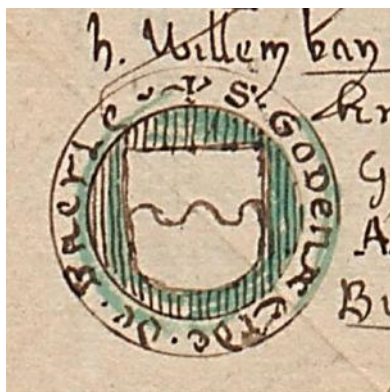 h. Willem van
S. GODENR ErDe. De. BAerLe
G
A